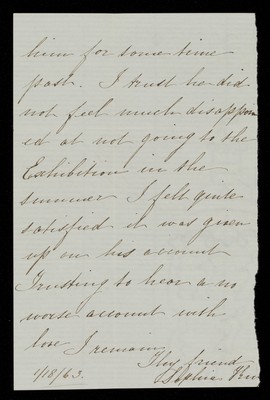 him for some time
past. I trust he did
not feel much disappoint
ed at not going to the
Exhibition in the
summer I felt quite
satisfied it was given
up on his account
Trusting to hear a no
worse account with
love I remain
Thy friend
Sophia
1/18/63.